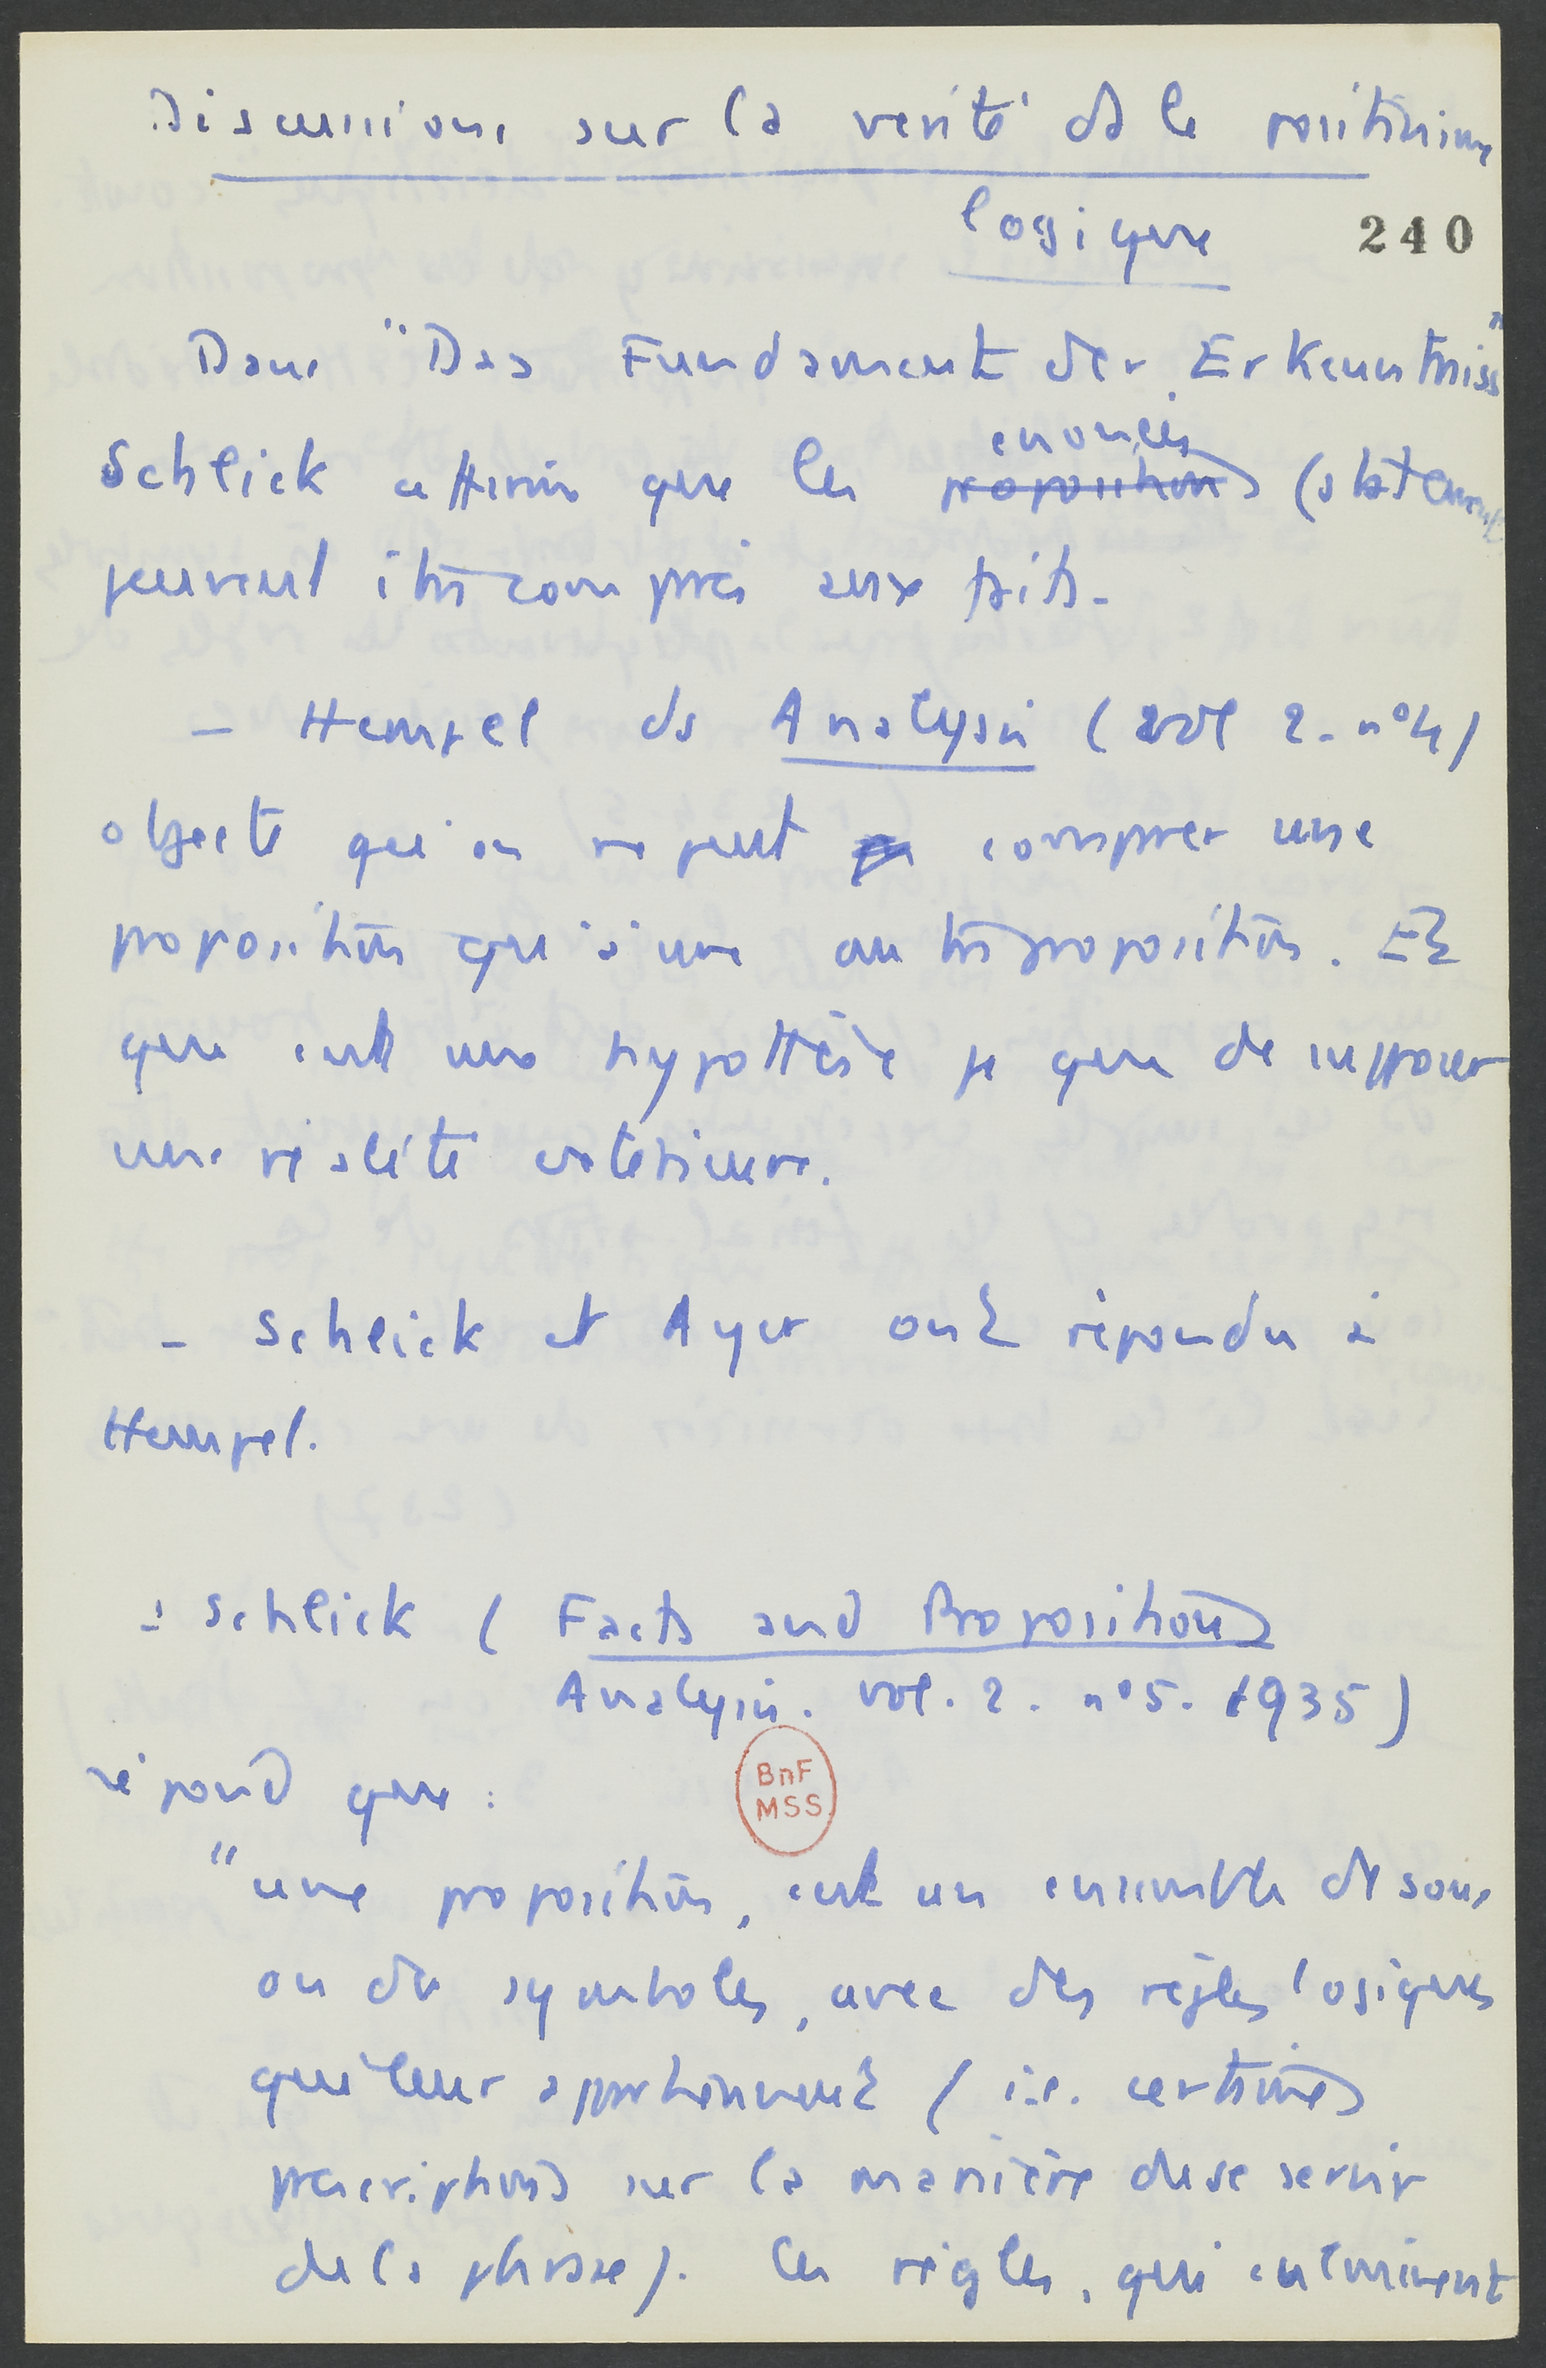 Discussions sur la vérité ds le positivisme
logique
240
Dans "Das Fundament der Erkenntniss"
énoncés
Schlick affirme que les propositions (statements
peuvent être comparés aux faits.
- Hempel ds Analysis (vol 2. n°4)
objecte qu'on ne peut comparer une
proposition qu'à une autre proposition. Et
que c'est une hypothèse que de supposer
une réalité extérieure.
- Schlick et Ayer ont répondu à
Hempel.
- Schlick (Facts and Propositions
Analysis. vol. 2. n°5. 1935)
répond que :
BnF
MSS
"une proposition, c'est un ensemble de sons
ou de symboles, avec des règles logiques
qui leur appartiennent (i.e. certaines
prescriptions sur la manière de se servir
de la phrase). Ces règles, qui culminent